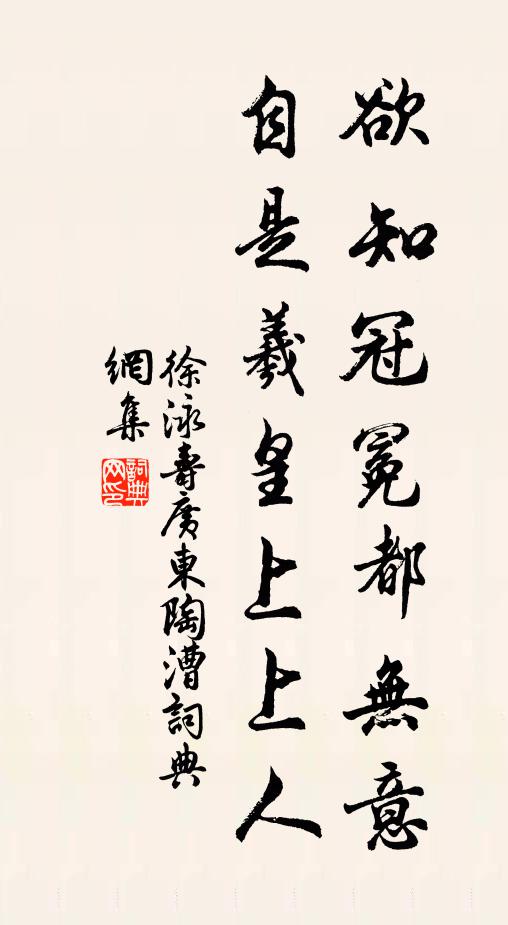 欲知冠冕都無意
自是羲皇上上人
徐泳壽廣東陶漕詞典
網集
詞典
网印